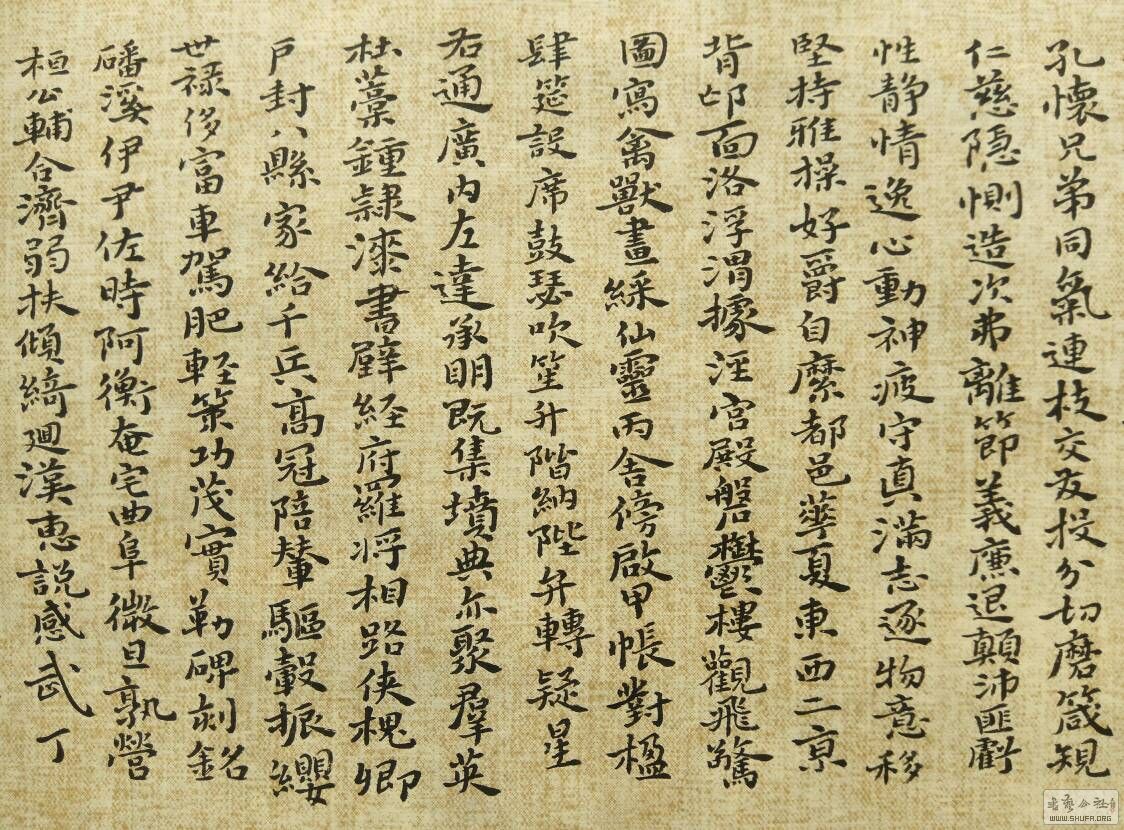 孔懷兄弟同氣連枝交友投分切磨箴規
仁慈隱惻造次弗離節義廉退顛沛匪虧
性静情逸心動神疲守真滿志逐物意移
堅持雅操好爵自縻都邑華夏東西二京
背邙面洛浮渭據涇宮殿盤欝樓觀飛驚
圖寫禽獸畫綵仙靈丙舍傍啟甲帳對楹
肆筵設席鼓瑟吹笙升階納陛弁轉疑星
右通廣內左達承明既集墳典亦聚羣英
杜稾鍾隷漆書壁經府羅将相路俠槐卿
戶封八縣家給千兵高冠陪輦驅轂振纓
世禄侈富車駕肥輕策功茂實勒碑刻銘
磻溪伊尹佐時阿衡奄宅曲阜微旦孰營
桓公輔合濟弱扶傾綺迴漢惠説感武丁
書藝公社
WWW.SHUFA.ORG